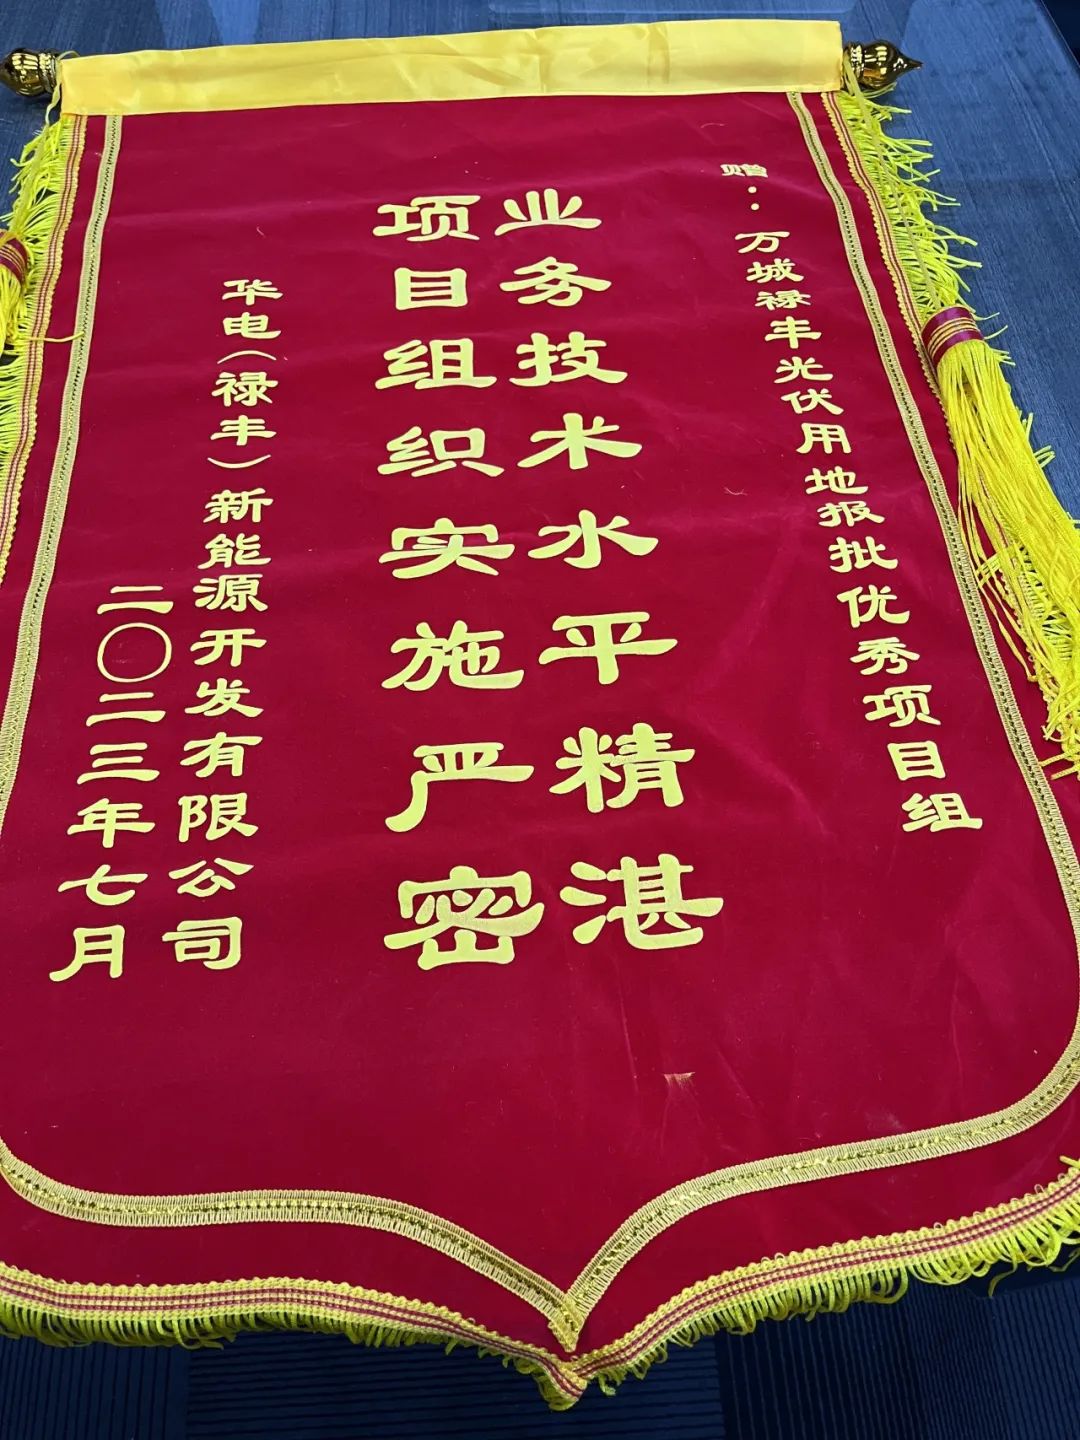 赠：万城禄丰光伏用地报批优秀项目组
业务技术水平精湛
项目组织实施严密
华电（禄丰）新能源开发有限公司
二〇二三年七月